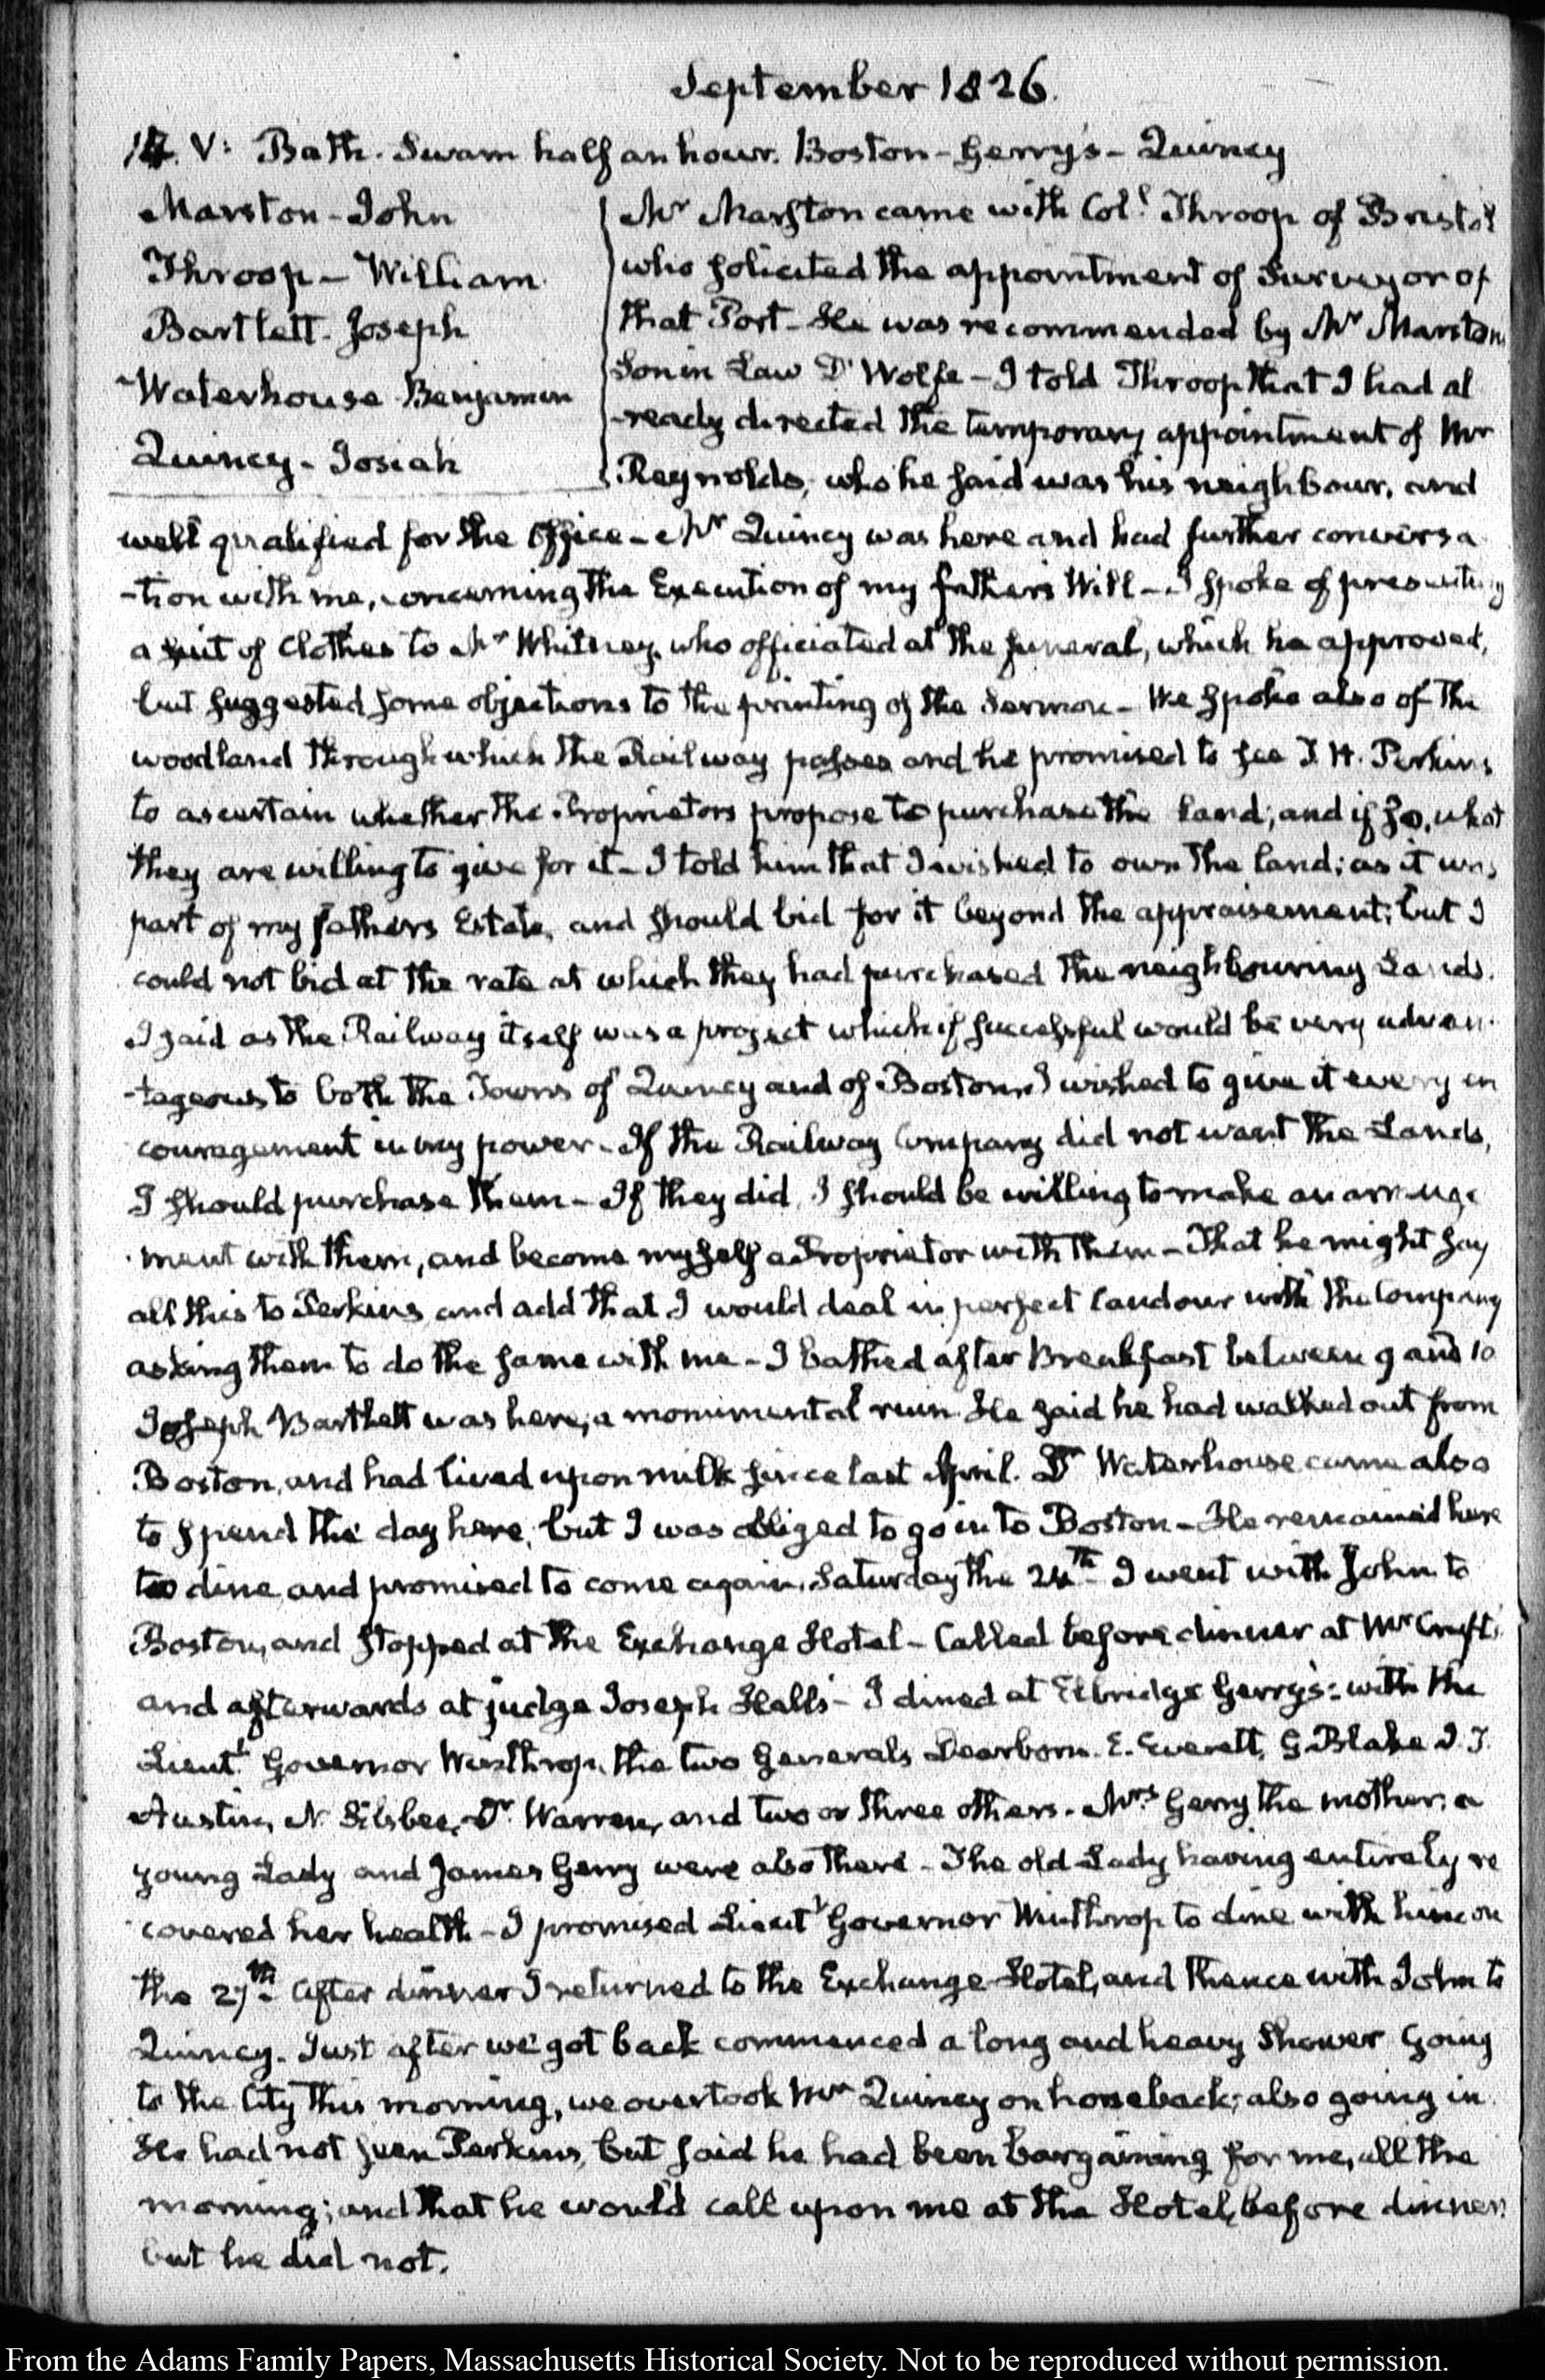 September 1826.
14. V: Bath. Swam half an hour. Boston - Gerry's - Quincy
Marston - John
Throop - William
Bartlett. Joseph
Waterhouse Benjamin
Quincy - Josiah
Mr Marston came with Coll. Throop of Bristol
who solicited the appointment of Surveyor of
that Port - He was recommended by Mr Marston
Son in Law D'Wolfe - I told Throop that I had al
-ready directed the temporary appointment of Mr
Reynolds, who he said was his neighbour, and
well qualified for the Office - Mr Quincy was here and had further conversa
-tion with me, concerning the Execution of my father's Will - I spoke of presenting
a suit of Clothes to Mr Whitney, who officiated at the funeral, which he approved,
but suggested some objections to the printing of the Sermon - We spoke also of the
woodland through which the Railway passes and he promised to see T. H. Perkins
to ascertain whether the Proprietors propose to purchase the Land; and if so, what
they are willing to give for it - I told him that I wished to own the land; as it was
part of my fathers Estate, and should bid for it beyond the appraisement; but I
could not bid at the rate at which they had purchased the neighbouring Lands.
I said as the Railway itself was a project which if successful would be very advan-
-tageous to both the Towns of Quincy and of Boston, I wished to give it every en
couragement in my power - If the Railway Company did not want the Lands,
I should purchase them - If they did, I should be willing to make an arrange
-ment with them, and become myself a Proprietor with them - That he might say
all this to Perkins and add that I would deal in perfect Candour with the Company
asking them to do the same with me - I bathed after Breakfast between 9 and 10
Joseph Bartlett was here, a monumental ruin. He said he had walked out from
Boston, and had lived upon milk since last April. Dr Waterhouse came also
to spend the day here, but I was obliged to go in to Boston - He remained here
to dine and promised to come again, Saturday the 24th - I went with John to
Boston, and stopped at the Exchange Hotel - Called before dinner at Mr Cruft's
and afterwards at judge Joseph Hall's - I dined at Elbridge Gerry's: with the
Lieutt. Governor Winthrop, the two Generals Dearborn. E. Everett, G. Blake J. T.
Austin, N. Silsbee, Dr. Warren, and two or three others. Mrs Gerry the mother, a
young Lady and James Gerry were also there - The old Lady having entirely re
-covered her health - I promised Lieutt Governor Winthrop to dine with him on
the 27th - After dinner I returned to the Exchange Hotel, and thence with John to
Quincy. Just after we got back commenced a long and heavy Shower. Going
to the City this morning, we overtook Mr Quincy on horseback; also going in.
He had not seen Perkins, but said he had been bargaining for me, all the
morning; and that he would call upon me at the Hotel, before dinner.
but he did not.
From the Adams Family Papers, Massachusetts Historical Society. Not to be reproduced without permission.